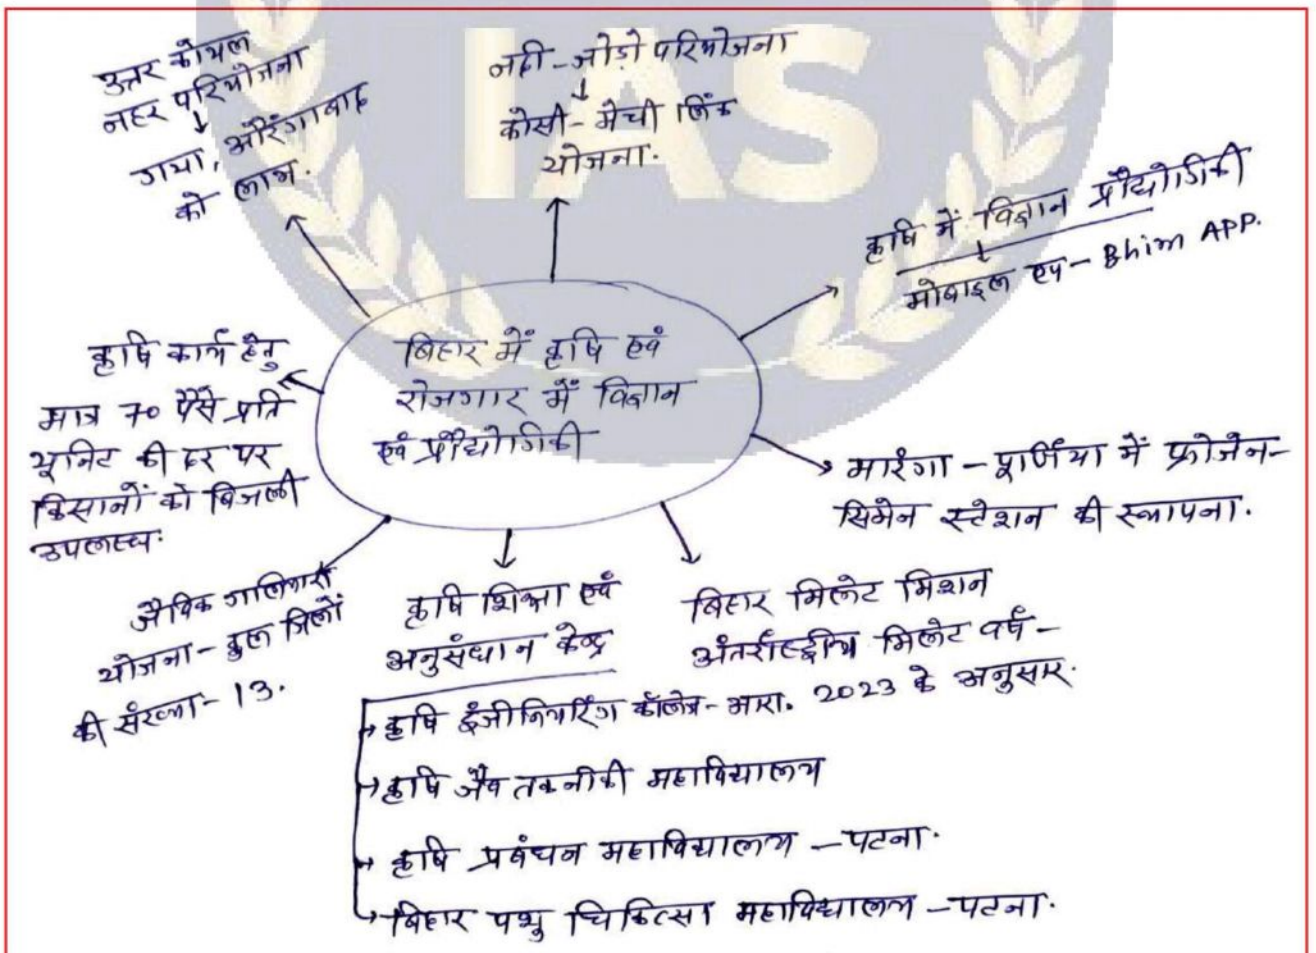 IAS
उत्तर कोयल
नहर परियोजना
↓
गया, औरंगाबाद
को लाभ.
नदी-जोड़ो परियोजना
↓
कोसी-मेची लिंक
योजना.
कृषि में विज्ञान प्रौद्योगिकी
↓
मोबाइल एप - Bhim APP.
बिहार में कृषि एवं
रोजगार में विज्ञान
एवं प्रौद्योगिकी
कृषि कार्य हेतु
मात्र 70 पैसे प्रति
यूनिट की दर पर
किसानों को बिजली
उपलब्ध.
मारंगा - पूर्णिया में फ्रोजेन-
सिमेन स्टेशन की स्थापना.
जैविक गलियारा
योजना - कुल जिलों
की संख्या - 13.
कृषि शिक्षा एवं
अनुसंधान केन्द्र
बिहार मिलेट मिशन
अंतर्राष्ट्रीय मिलेट वर्ष -
2023 के अनुसार.
→ कृषि इंजीनियरिंग कॉलेज - आरा.
→ कृषि जैव तकनीकी महाविद्यालय
→ कृषि प्रबंधन महाविद्यालय - पटना.
→ बिहार पशु चिकित्सा महाविद्यालय - पटना.